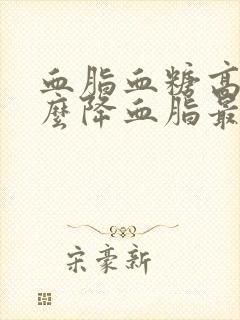 血脂血糖高
麽降血脂最
宋豪新